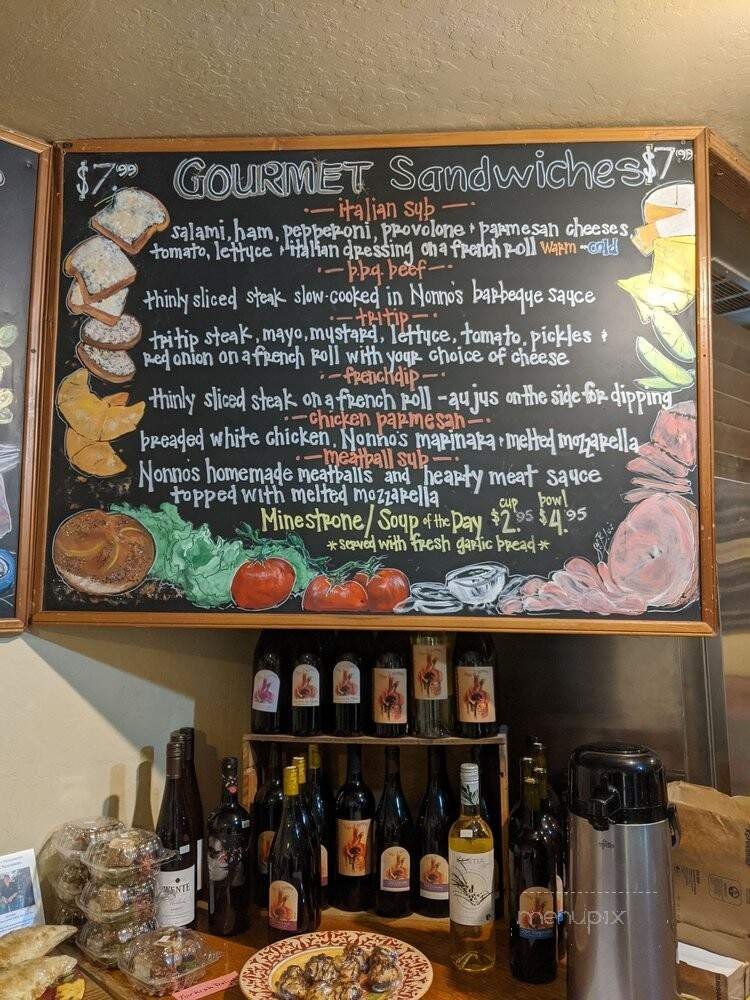 $7.99 GOURMET Sandwiches $7.99
italian sub
salami, ham, pepperoni, provolone + parmesan cheeses,
tomato, lettuce + italian dressing on a french roll warm or cold
b.b.q. beef
thinly sliced steak slow-cooked in Nonno's barbeque sauce
tri tip
tri tip steak, mayo, mustard, lettuce, tomato, pickles +
red onion on a french roll with your choice of cheese
french dip
thinly sliced steak on a french roll - au jus on the side for dipping
chicken parmesan
breaded white chicken, Nonno's marinara + melted mozzarella
meatball sub
Nonno's homemade meatballs and hearty meat sauce
topped with melted mozzarella
cup bowl
Minestrone / Soup of the Day $2.95 $4.95
*served with fresh garlic bread*
WENTE
menupix